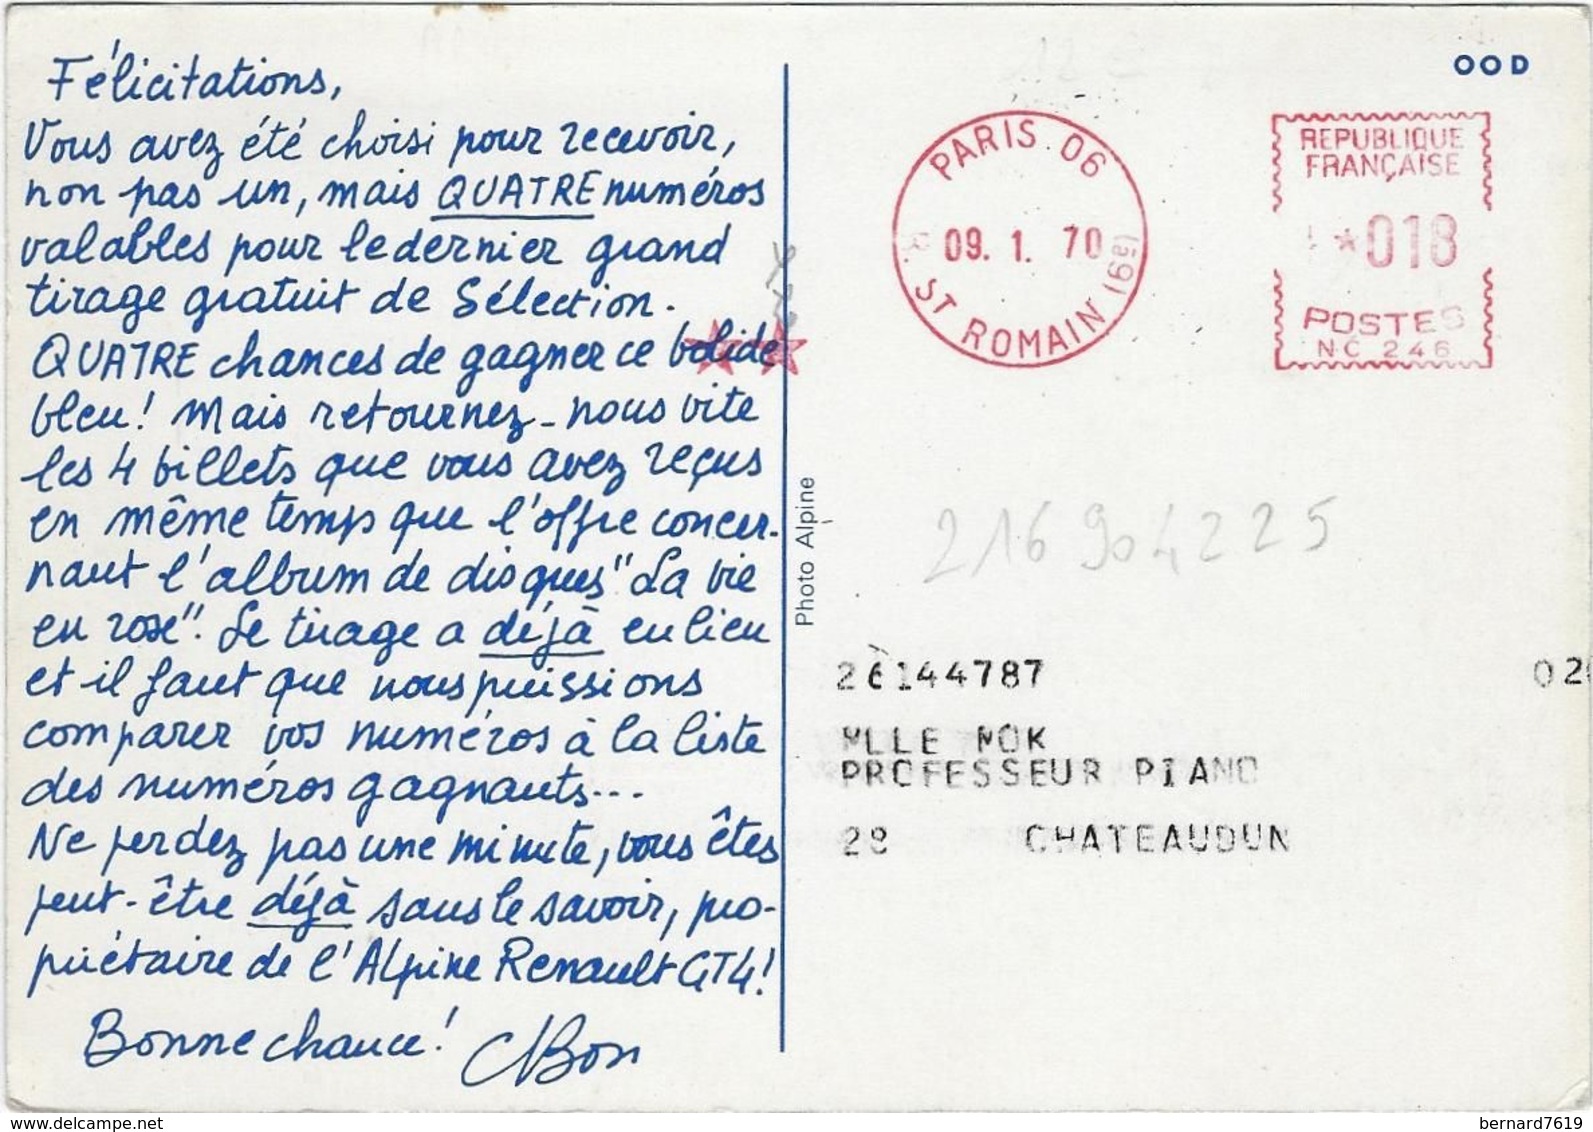 Félicitations,
Vous avez été choisi pour recevoir,
non pas un, mais QUATRE numéros
valables pour le dernier grand
tirage gratuit de Sélection.
QUATRE chances de gagner ce bolide
bleu! Mais retournez-nous vite
les 4 billets que vous avez reçus
en même temps que l'offre concer-
nant l'album de disques "La vie
en rose". Le tirage a déjà eu lieu
et il faut que nous puissions
comparer vos numéros à la liste
des numéros gagnants...
Ne perdez pas une minute, vous êtes
peut-être déjà sans le savoir, pro-
priétaire de l'Alpine Renault GT4!
Bonne chance!
Photo Alpine
OOD
PARIS 06
09. 1. 70
R. ST ROMAIN (6è)
REPUBLIQUE
FRANÇAISE
*018
POSTES
NC 246
216904225
26144787 02
MLLE MOK
PROFESSEUR PIANO
28 CHATEAUDUN
delcampe.net
bernard7619